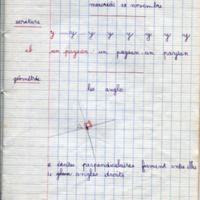 mercredi 12 novembre
écriture
y y y y y y y y
un pigeon un pigeon un pigeon
géométrie
les angles
droites perpendiculaires forment entre elles
angles droits